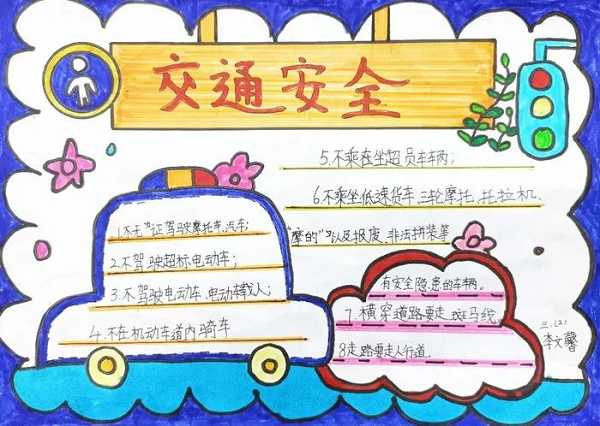 交通安全
1.不无证驾驶摩托车、汽车;
2.不驾驶超标电动车;
3.不驾驶电动车、电动车载人;
4.不在机动车道内骑车
5.不乘坐超员车辆;
6.不乘坐低速货车、三轮摩托、拖拉机、
“摩的”以及报废、非法拼装等
有安全隐患的车辆。
7.横穿道路要走斑马线。
8走路要走人行道.
三.(2)
李文馨